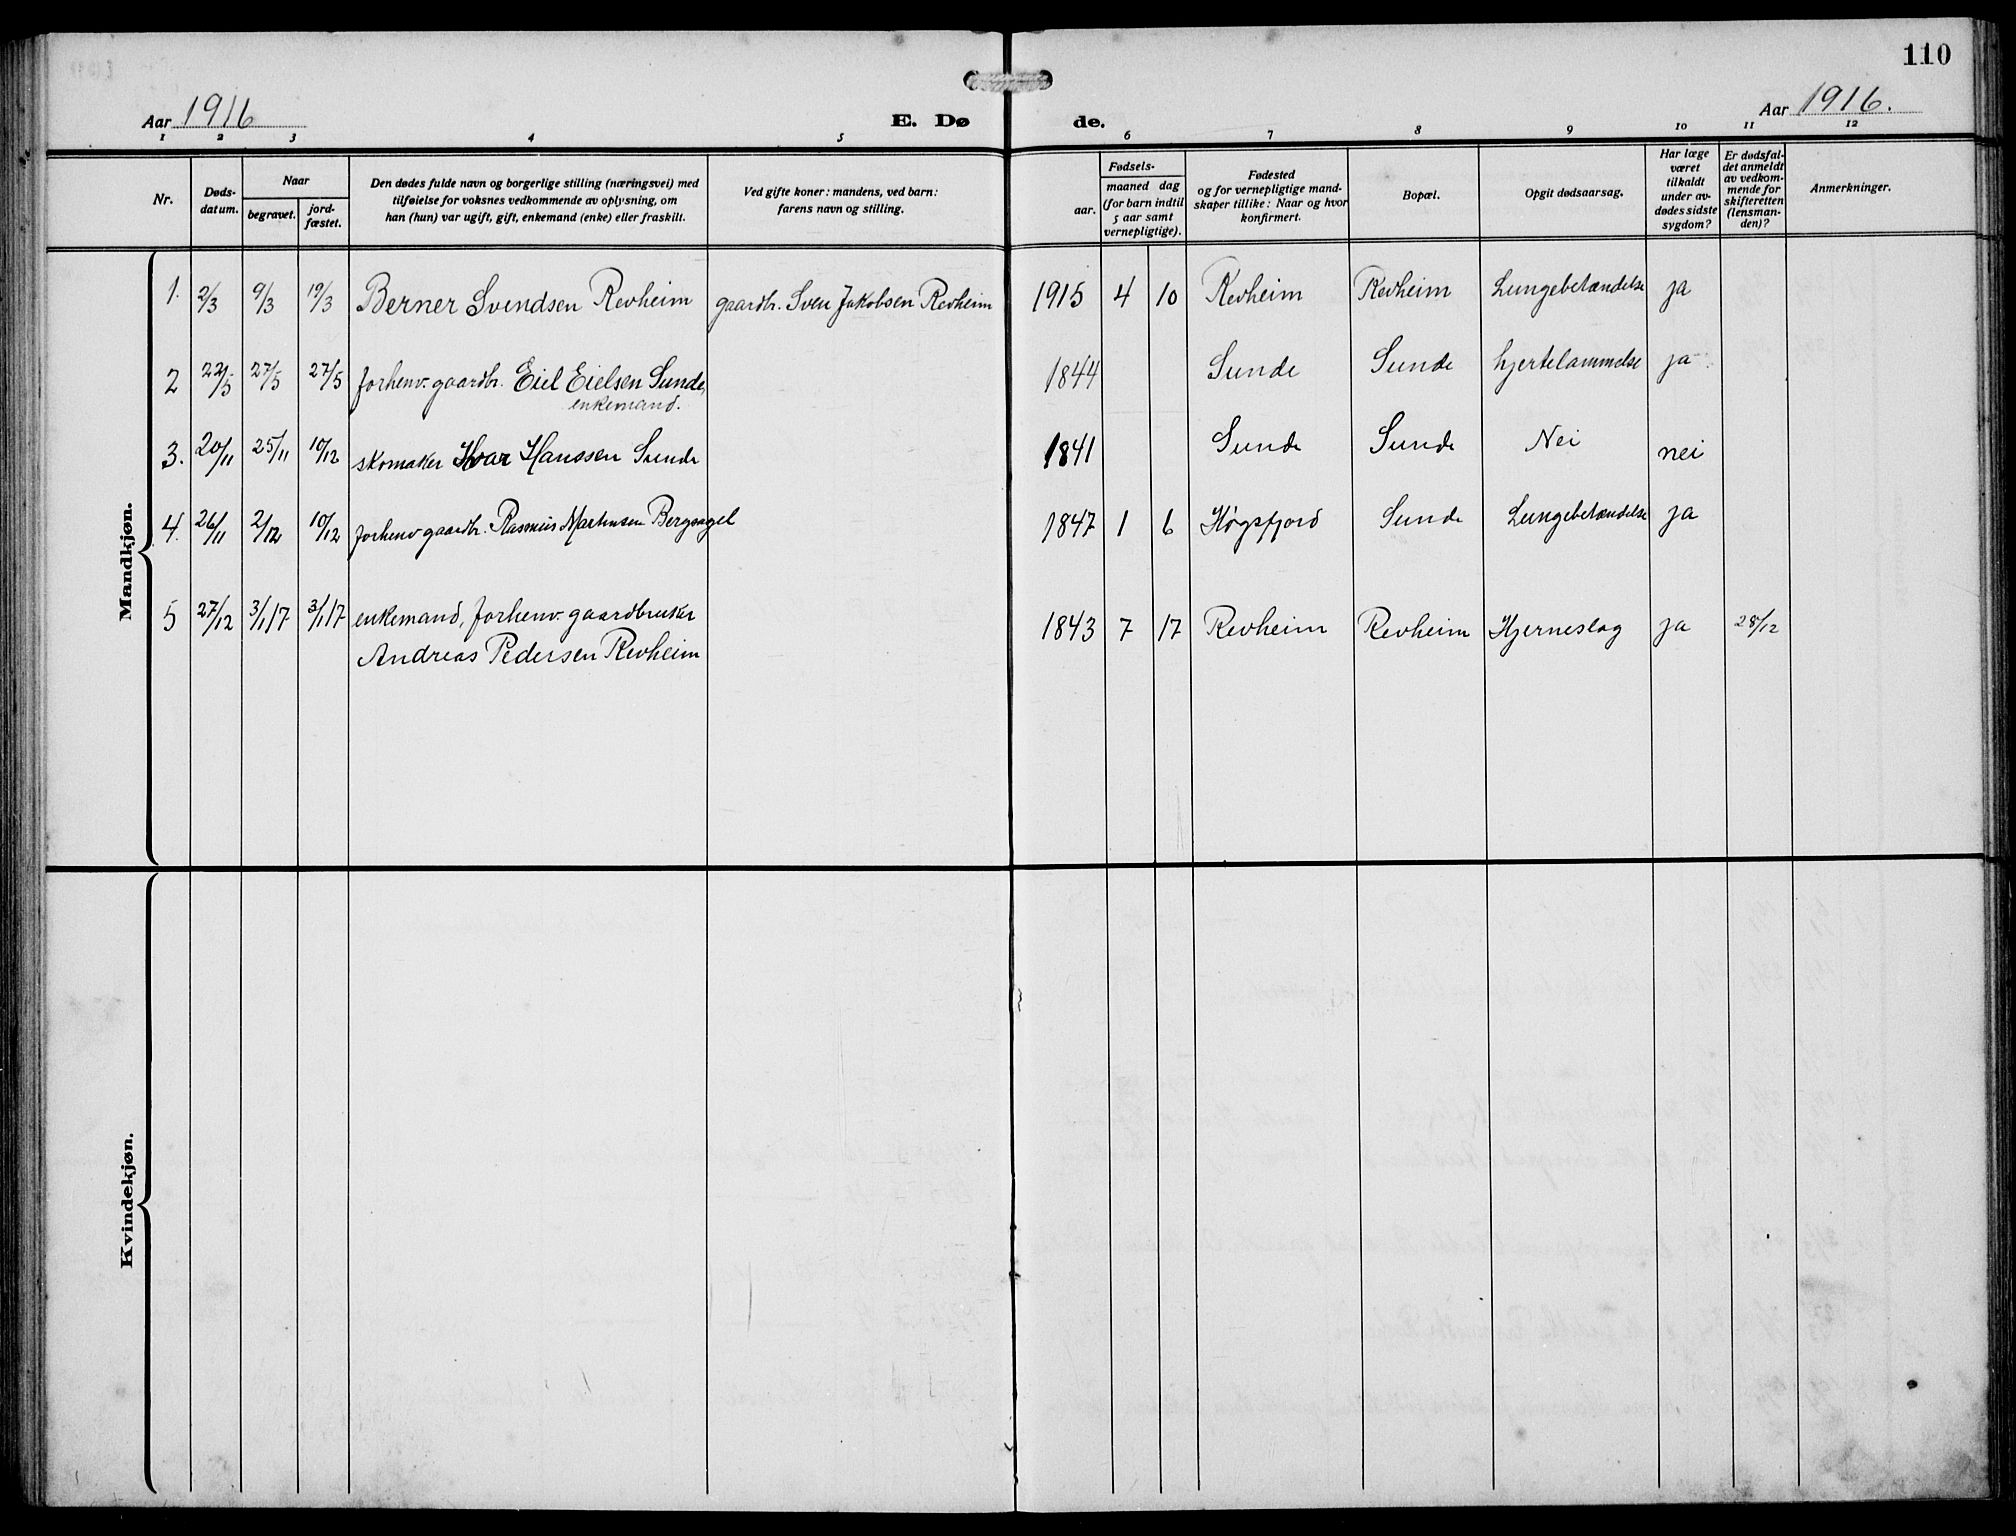 110
Aar 1916 E. Dø de. Aar 1916.
1 2 3 4 5 6 7 8 9 10 11 12
Nr.
Døds-
datum.
Naar
begravet.
jord-
fæstet.
Den dødes fulde navn og borgerlige stilling (næringsvei) med
tilføielse for voksnes vedkommende av oplysning, om
han (hun) var ugift, gift, enkemand (enke) eller fraskilt.
Ved gifte koner: mandens, ved barn:
farens navn og stilling.
Fødsels-
aar.
maaned dag
(for barn indtil
5 aar samt
vernepligtige).
Fødested
og for vernepligtige mand-
skaper tillike: Naar og hvor
konfirmert.
Bopæl.
Opgit dødsaarsag.
Har læge
været
tilkaldt
under av-
dødes sidste
sygdom?
Er dødsfal-
det anmeldt
av vedkom-
mende for
skifteretten
(lensman-
den)?
Anmerkninger.
Mandkjøn.
1. 2/3 9/3 19/3 Berner Svendsen Revheim gaardbr. Sven Jakobsen Revheim 1915 4 10 Revheim Revheim Lungebetændelse ja
2 22/5 27/5 27/5 forhenv. gaardbr. Eiel Eielsen Sunde, 1844 Sunde Sunde hjertelammelse ja
enkemand.
3. 20/11 25/11 10/12 skomaker Hanssen Sunde 1841 Sunde Sunde Nei nei
4. 26/11 2/12 10/12 forhenv gaardbr. Rasmus Martinsen Bergsagel 1847 1 6 Høgsfjord Sunde Lungebetændelse ja
5 27/12 3/1 17 3/1 17 enkemand, forhenv. gaardbruker 1843 7 17 Revheim Revheim Hjerneslag ja 28/12
Andreas Pedersen Revheim
Kvindekjøn.